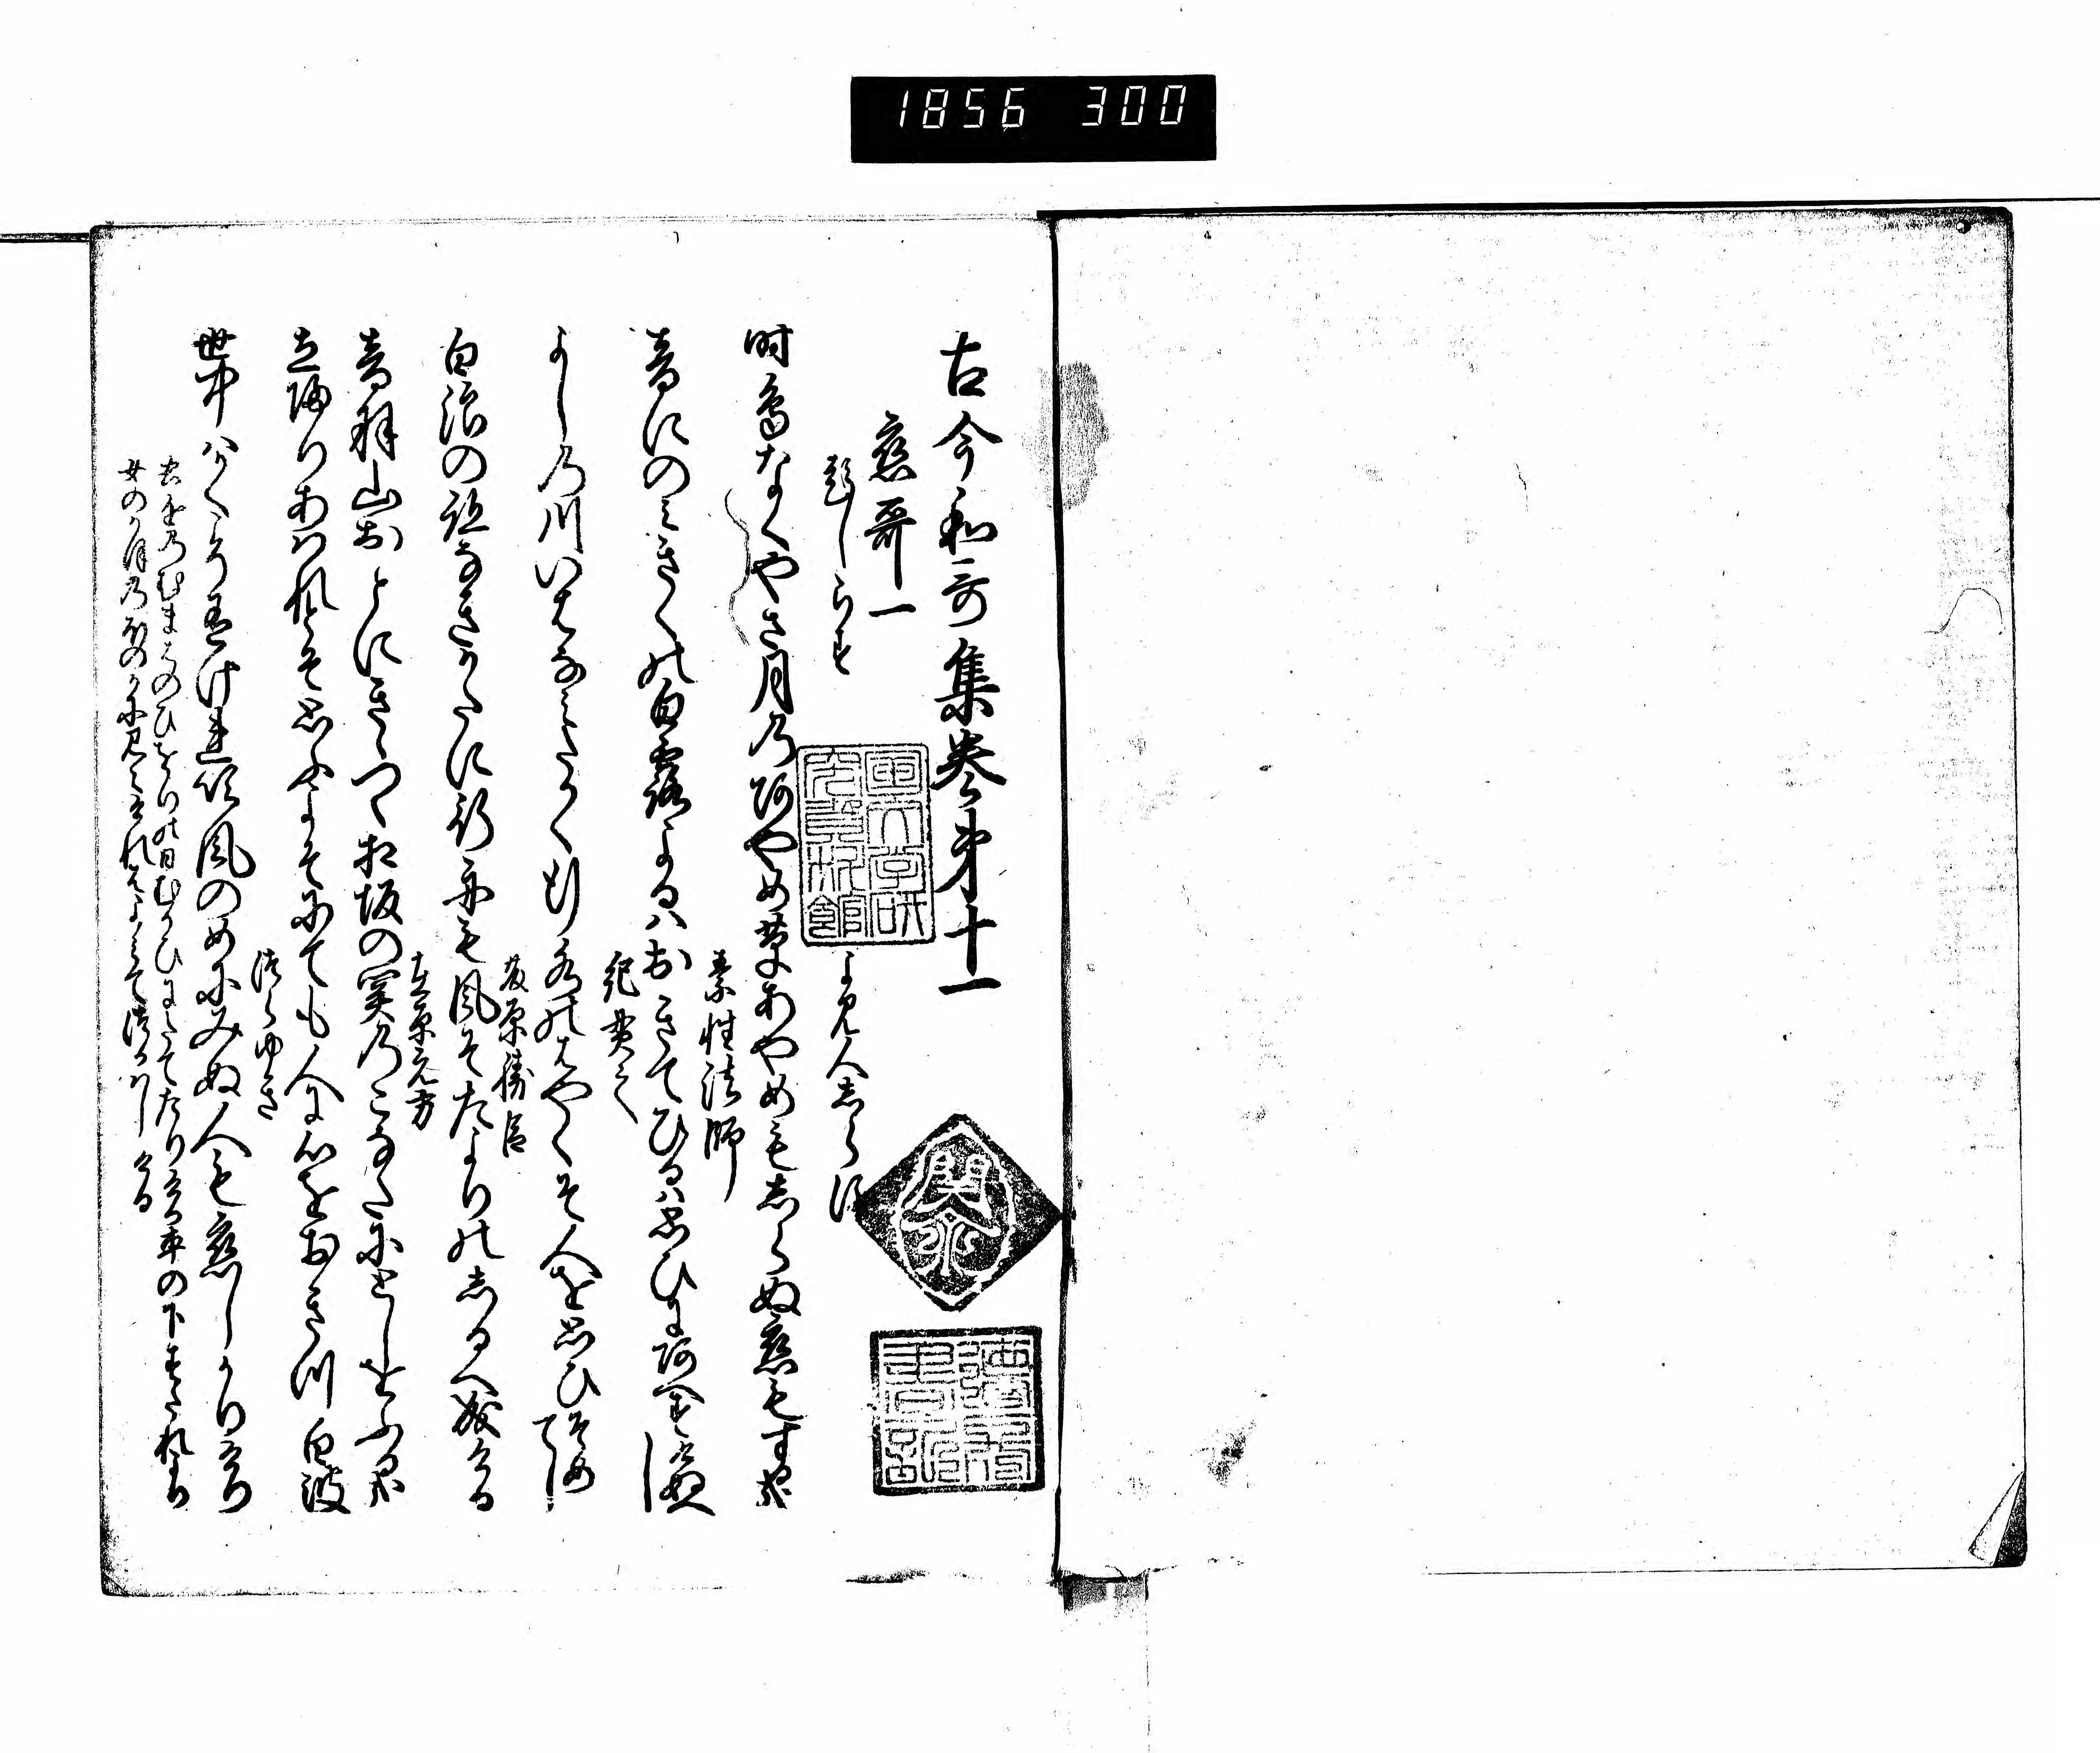 1856 300
古今和哥集巻第十一
恋哥一
題しらす
よみ人しらす
時鳥なくやさ月のあやめ草あやめもしらぬ恋もする哉
素性法師
音にのみきくの白露よるはおきてひるは思ひにあへすけぬへし
紀貫之
よしの川いはなみたかく行水のはやくそ人を思ひそめてし
藤原勝臣
白浪の跡なきかたに行舟も風そたよりのしるへ成ける
在原元方
音羽山おとにきゝつゝ相坂の関のこなたにとしをふる哉
立帰りあはれとそ思ふよそにても人に心をおきつ白波
つらゆき
世中はかくこそ有けれ吹風のめにみぬ人も恋しかりけり
右近のむまはのひをりの日むかひにたてたりける車の下すたれより
女のかほのほのかに見えけれはよみてつかはしける
国文学研究資料館